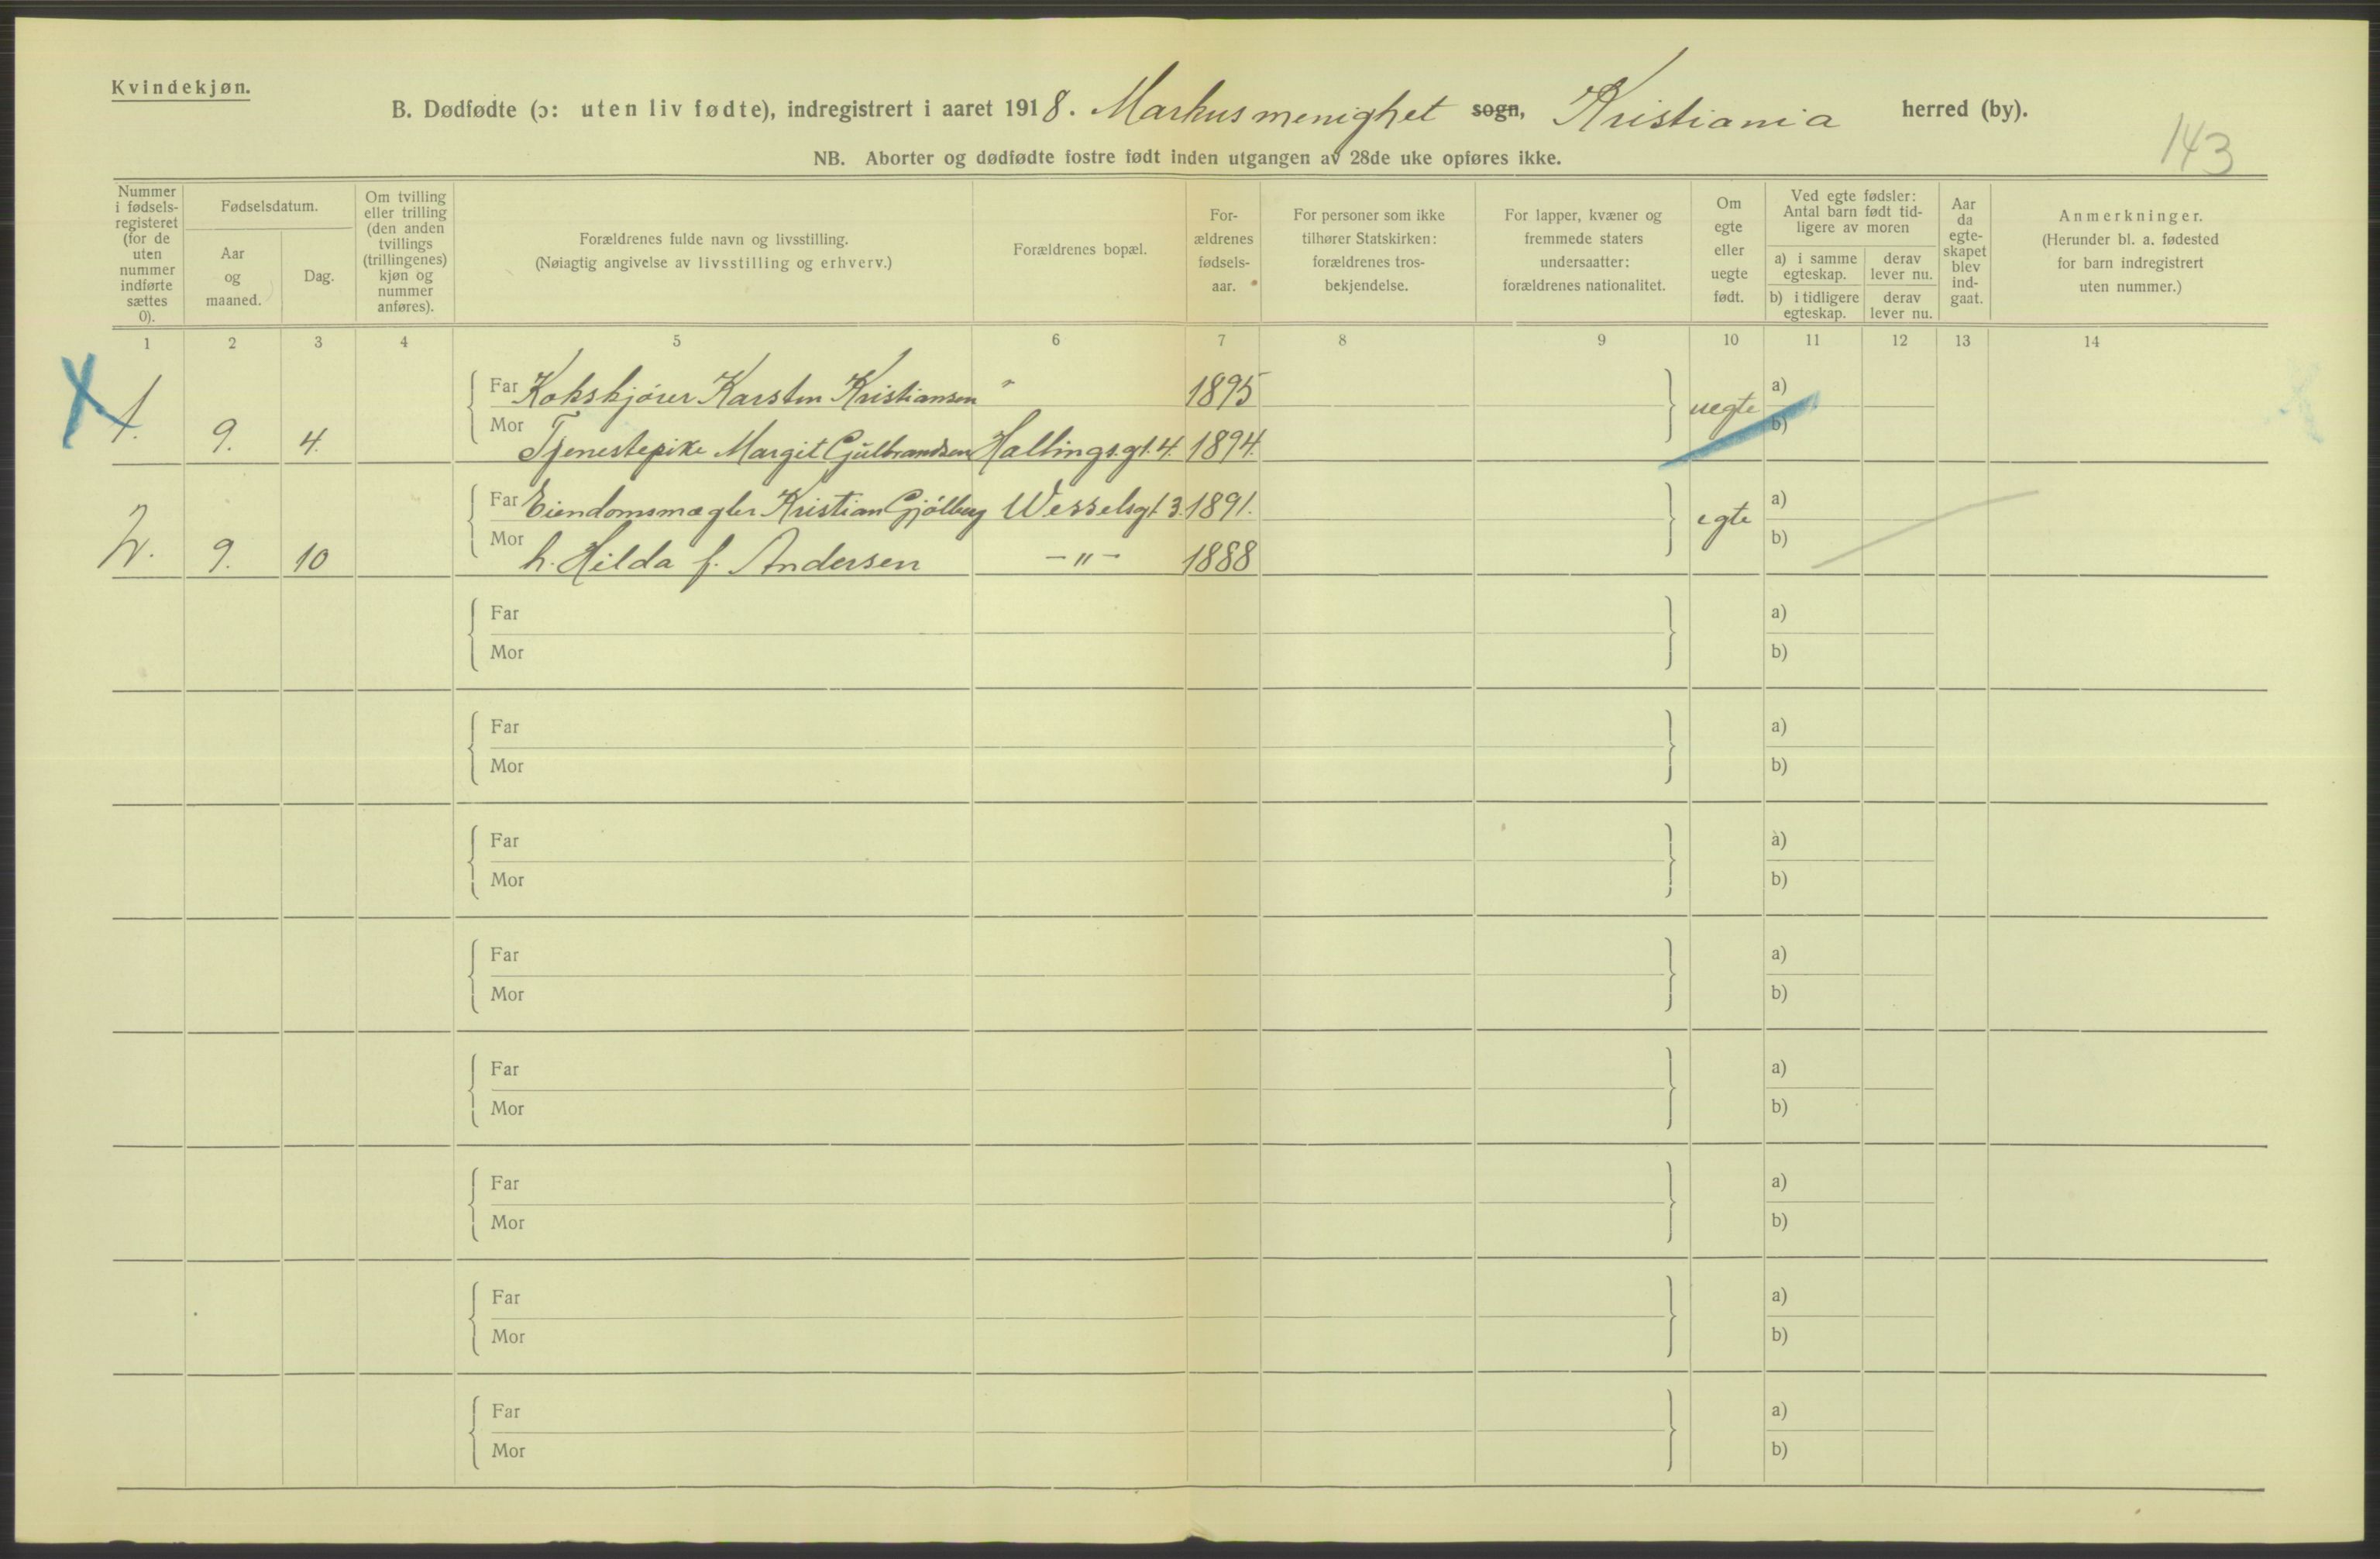 Kvindekjøn.
B. Dødfødte (ɔ: uten liv fødte), indregistrert i aaret 1918. Markus menighet sogn, Kristiania herred (by).
143
NB. Aborter og dødfødte fostre født inden utgangen av 28de uke opføres ikke.
Nummer i fødsels-registeret (for de uten nummer indførte sættes 0).
Fødselsdatum.
Aar og maaned.
Dag.
Om tvilling eller trilling (den anden tvillings (trillingenes) kjøn og nummer anføres).
Forældrenes fulde navn og livsstilling.
(Nøiagtig angivelse av livsstilling og erhverv.)
Forældrenes bopæl.
For-ældrenes fødsels-aar.
For personer som ikke tilhører Statskirken: forældrenes tros-bekjendelse.
For lapper, kvæner og fremmede staters undersaatter: forældrenes nationalitet.
Om egte eller uegte født.
Ved egte fødsler: Antal barn født tid-ligere av moren
a) i samme egteskap.
derav lever nu.
b) i tidligere egteskap.
derav lever nu.
Aar da egte-skapet blev ind-gaat.
Anmerkninger.
(Herunder bl. a. fødested for barn indregistrert uten nummer.)
1 2 3 4 5 6 7 8 9 10 11 12 13 14
Far Kokskjører Karsten Kristiansen " 1895 a)
1. 9. 4. uegte
Mor Tjenestepike Margit Gulbrandsen Hallings.gt. 4. 1894. b)
Far Eiendomsmægler Kristian Gjølberg Wesselsgt. 3. 1891. a)
2. 9. 10 egte
Mor h. Hilda f. Andersen — " — 1888 b)
Far a)
Mor b)
Far a)
Mor b)
Far a)
Mor b)
Far a)
Mor b)
Far a)
Mor b)
Far a)
Mor b)
Far a)
Mor b)
Far a)
Mor b)